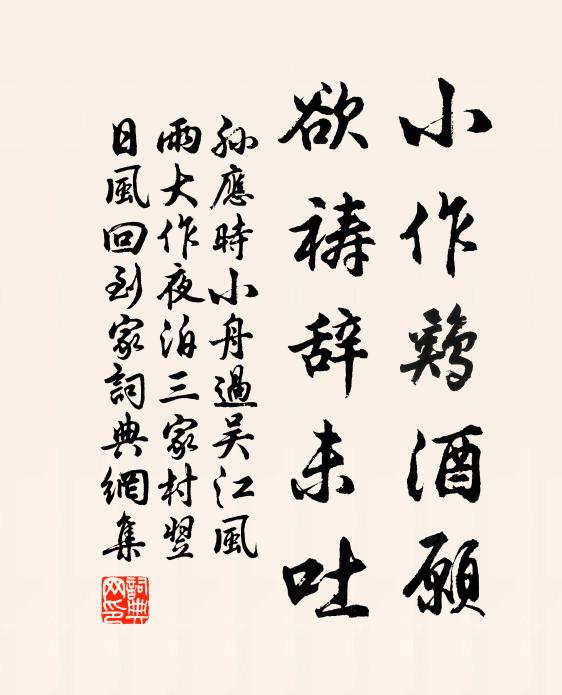 小作鷄酒願
欲祷辞未吐
孙應時小舟過吴江風
雨大作夜泊三家村翌
日風回到家詞典網集
詞典
网印